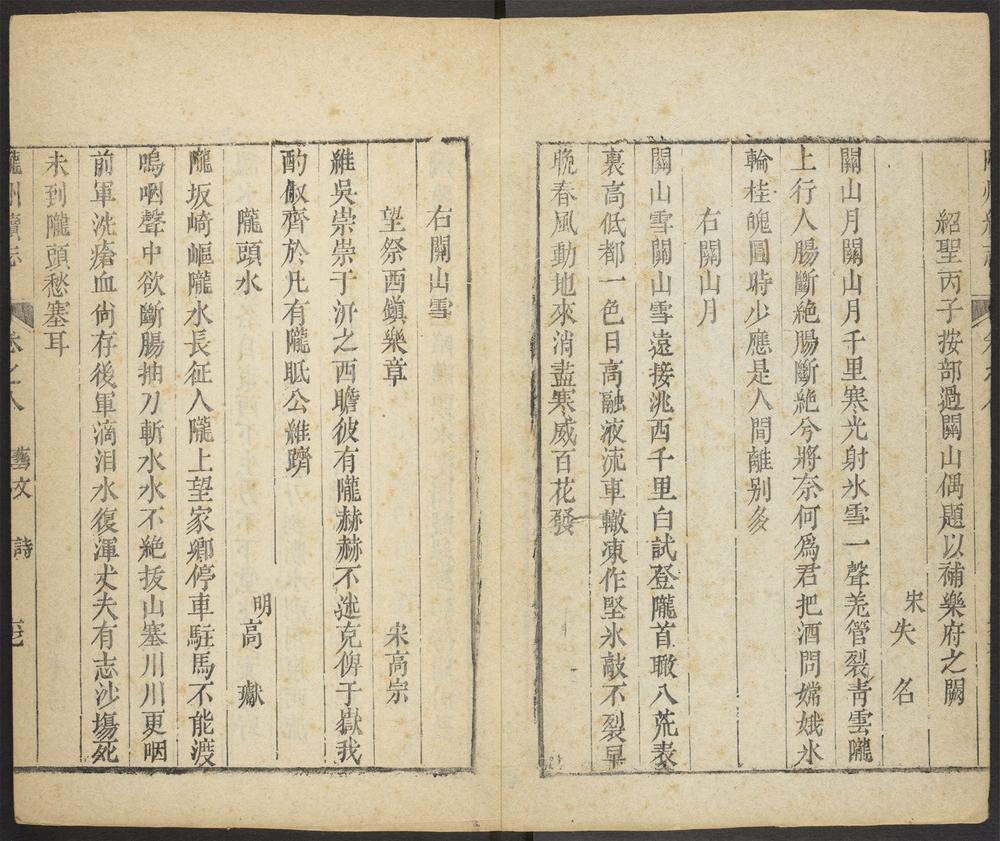 紹聖丙子按部過關山偶題以補樂府之闕
宋失名
關山月關山月千里寒光射氷雪一聲羌管裂青雲隴
上行人腸斷絶腸斷絶兮將奈何爲君把酒問嫦娥氷
輪桂魄圓時少應是人間離别多
右關山月
關山雪關山雪遠接洮西千里白試登隴首瞰八荒表
裏高低都一色日高融液流車轍凍作堅氷敲不裂早
晚春風動地來消盡寒威百花發
右關山雪
望祭西鎭樂章
宋高宗
維吳崇崇于汧之西瞻彼有隴赫赫不迷克俾于嶽我
酌俶齊於凡有隴眂公維躋
隴頭水
明高嶽
隴坂崎嶇隴水長征人隴上望家鄉停車駐馬不能渡
嗚咽聲中欲斷腸抽刀斬水水不絶拔山塞川川更咽
前軍洗瘡血尙存後軍滴泪水復渾丈夫有志沙塲死
未到隴頭愁塞耳
隴州續志
卷之八
藝文
詩